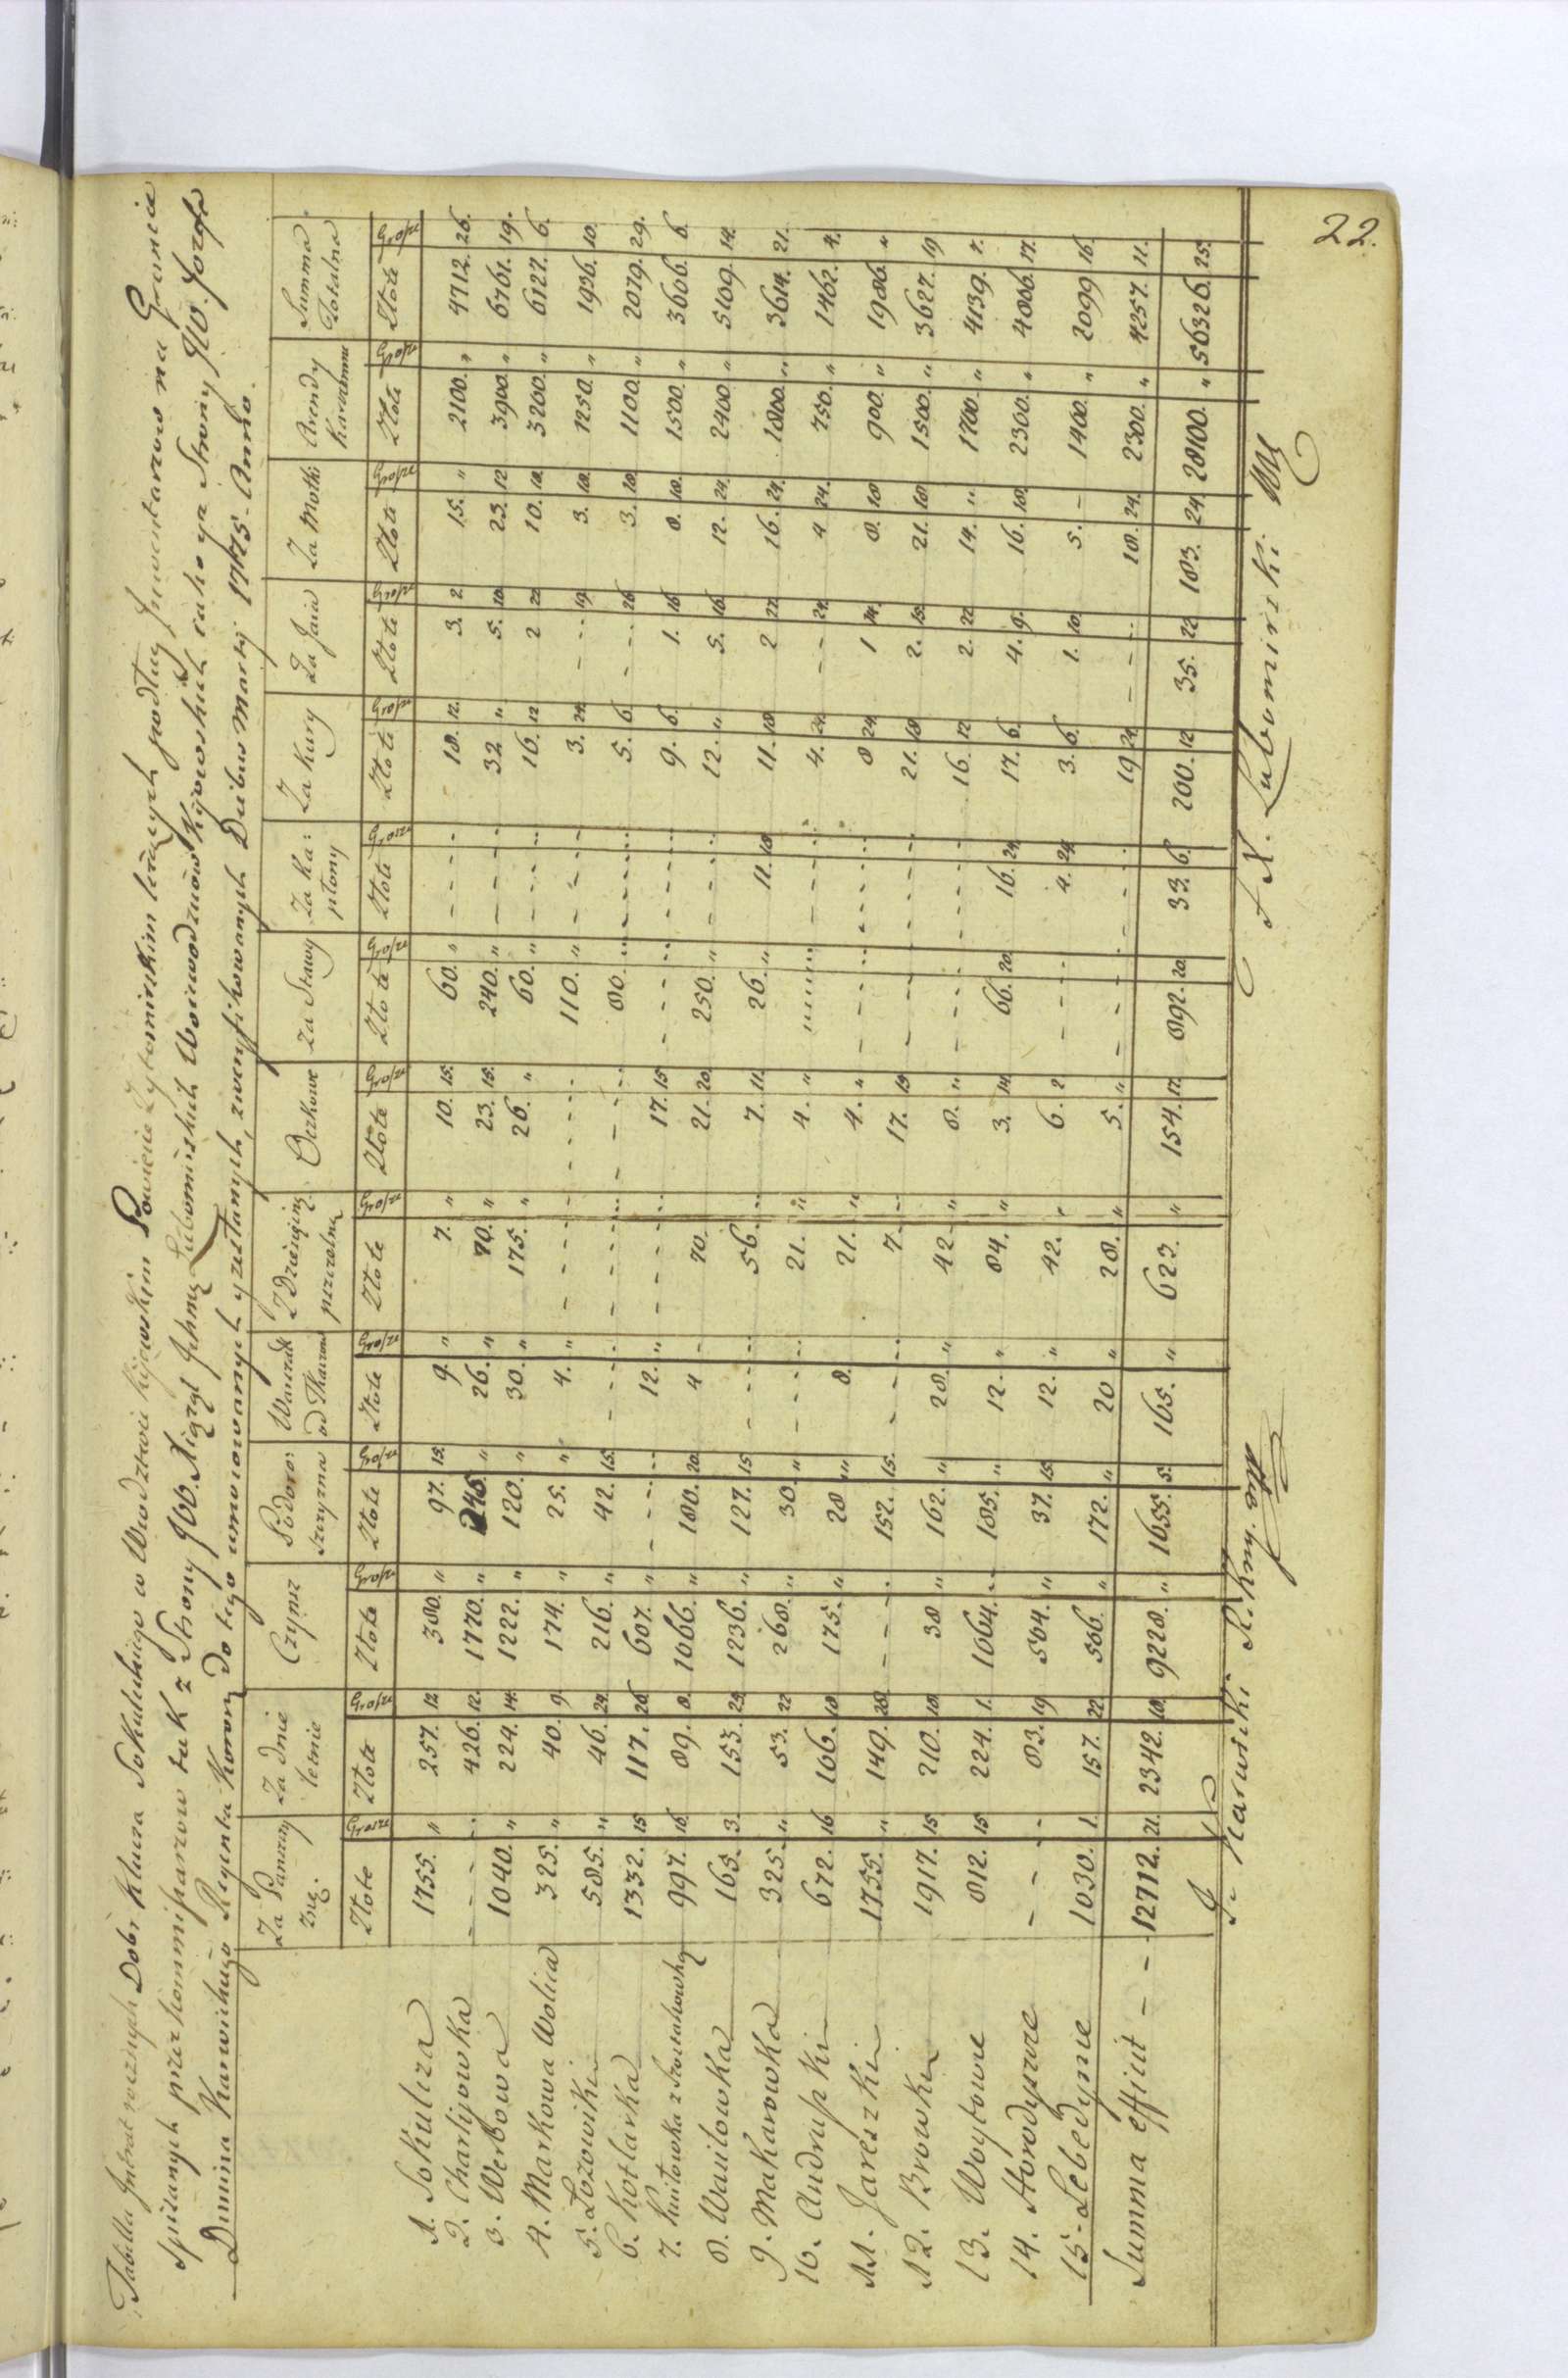 Tabella Intrat rocznych Dobr Klucza Sokuluckiego w Wwodztwie Kijowskim Powiecie Zytomirskim leżących podług Inwentarzow na Gruncie
Spisanych przez kommissarzow tak z Strony JOO. Xiążąt Ichmę Lubomirskich Woiewodzicow Kijowskich iako y z Strony JW. Jozefa
Dunina Karwickiego Regenta Koron: do tego umocowanych y zesłanych, zweryfikowanych Duibus Martij 1775. Anno.
Za Panszczyznę. | Za dnie letnie | Czynsz | Podoroszczyzna | Warsztat od Tkaczow | Z Dziesięciny pszczelney | Oczkowe | Za Stawy | Za Kapłony | Za Kury | Za Jaia | Za Motki | Arendy Karczemne | Summa Totalna
Złote | Grosze | Złote | Grosze | Złote | Grosze | Złote | Grosze | Złote | Grosze | Złote | Grosze | Złote | Grosze | Złote | Grosze | Złote | Grosze | Złote | Grosze | Złote | Grosze | Złote | Grosze | Złote | Grosze | Złote | Grosze
1. Sokulcza 1755. " 257. 12 380. " 97. 15. 9. " 7. " 10. 15. 60. " - - 18. 12. 3. 2 15. " 2100. " 4712. 26.
2. Charlijowka - - 426. 12. 1770. " 245. " 26. " 70. " 23. 15. 240. " - - 32. " 5. 10. 23. 12 3900. " 6761. 19.
3. Werbowa 1040. " 224. 14. 1222. " 120. " 30. " 175. " 26. " 60. " - - 16. 12 2 22 10. 18. 3200. " 6127. 6.
4. Markowa Wolica 325. " 40. 9. 174. " 25. " 4. " - - - - 110. " - - 3. 24. - 19. 3. 18. 1250. " 1936. 10.
5. Łozowiki 585. " 46. 24. 216. " 42. 15. - - - - - - 80. - - - 5. 6. - 26. 3. 18. 1100. " 2079. 29.
6. Kotlarka 1332. 15 117. 28 607. " - - 12. " - - 17. 15 - - - - 9. 6. 1. 16. 8. 18. 1500. " 3606. 6.
7. 997. 16. 89. 8. 1066. " 180. 20. 4 - 70. 21. 20. 250. " - - 12. " 5. 16. 12. 24. 2400. " 5109. 14.
8. Wasilowka 165. 3. 153. 25. 1236. " 127. 15 - - 56. - 7. 11. 26. " 11. 18. 11. 18 2 27. 16. 24. 1800. " 3614. 21.
9. Makarowka 325. " 53. 22 268. " 30. " - - 21. " 4. " - - - - 4. 24. - 24. 4 24. 750. " 1462. 4.
10. Andrupki 672. 16 166. 18 175. " 28 " 8. 21. " 4. " - - - - 8 24. 1 14. 8. 18 900. " 1986. "
11. Jareszki 1755. " 149. 28. - - 152. 15. - - 7. - 17. 15. - - - - 21. 18 2. 15. 21. 18. 1500. " 3627. 19
12. Browki 1917. 15 210. 18. 38 " 162. " 28. " 42 " 8. " - - - - 16. 12 2. 22 14. " 1700. " 4139. 7.
13. Woytowe 812. 15 224. 1. 1064. - 185. " 12. " 84. " 3. 14. 66. 20. 16. 24. 17. 6. 4. 9. 16. 18. 2300. " 4806. 17.
14. Horodyszcze - - 83. 19 504. " 37. 15. 12. " 42. " 6. 2. - - 4. 24. 3. 6. 1. 10. 5. - 1400. " 2099 16.
15. Lebedynie 1030. 1. 157. 22 506. " 172. " 20 " 28. " 5. " - - - - 19. 24. - - 18. 24. 2300. " 4257. 11.
Summa efficit - - 12712. 21. 2342. 18. 9228. " 1655. 5. 165. " 623. " 154. 17. 892. 20. 33. 6. 200. 12 35. 22 183. 24. 28100. " 56326. 25.
Karwicki
X. Lubomirski
22.